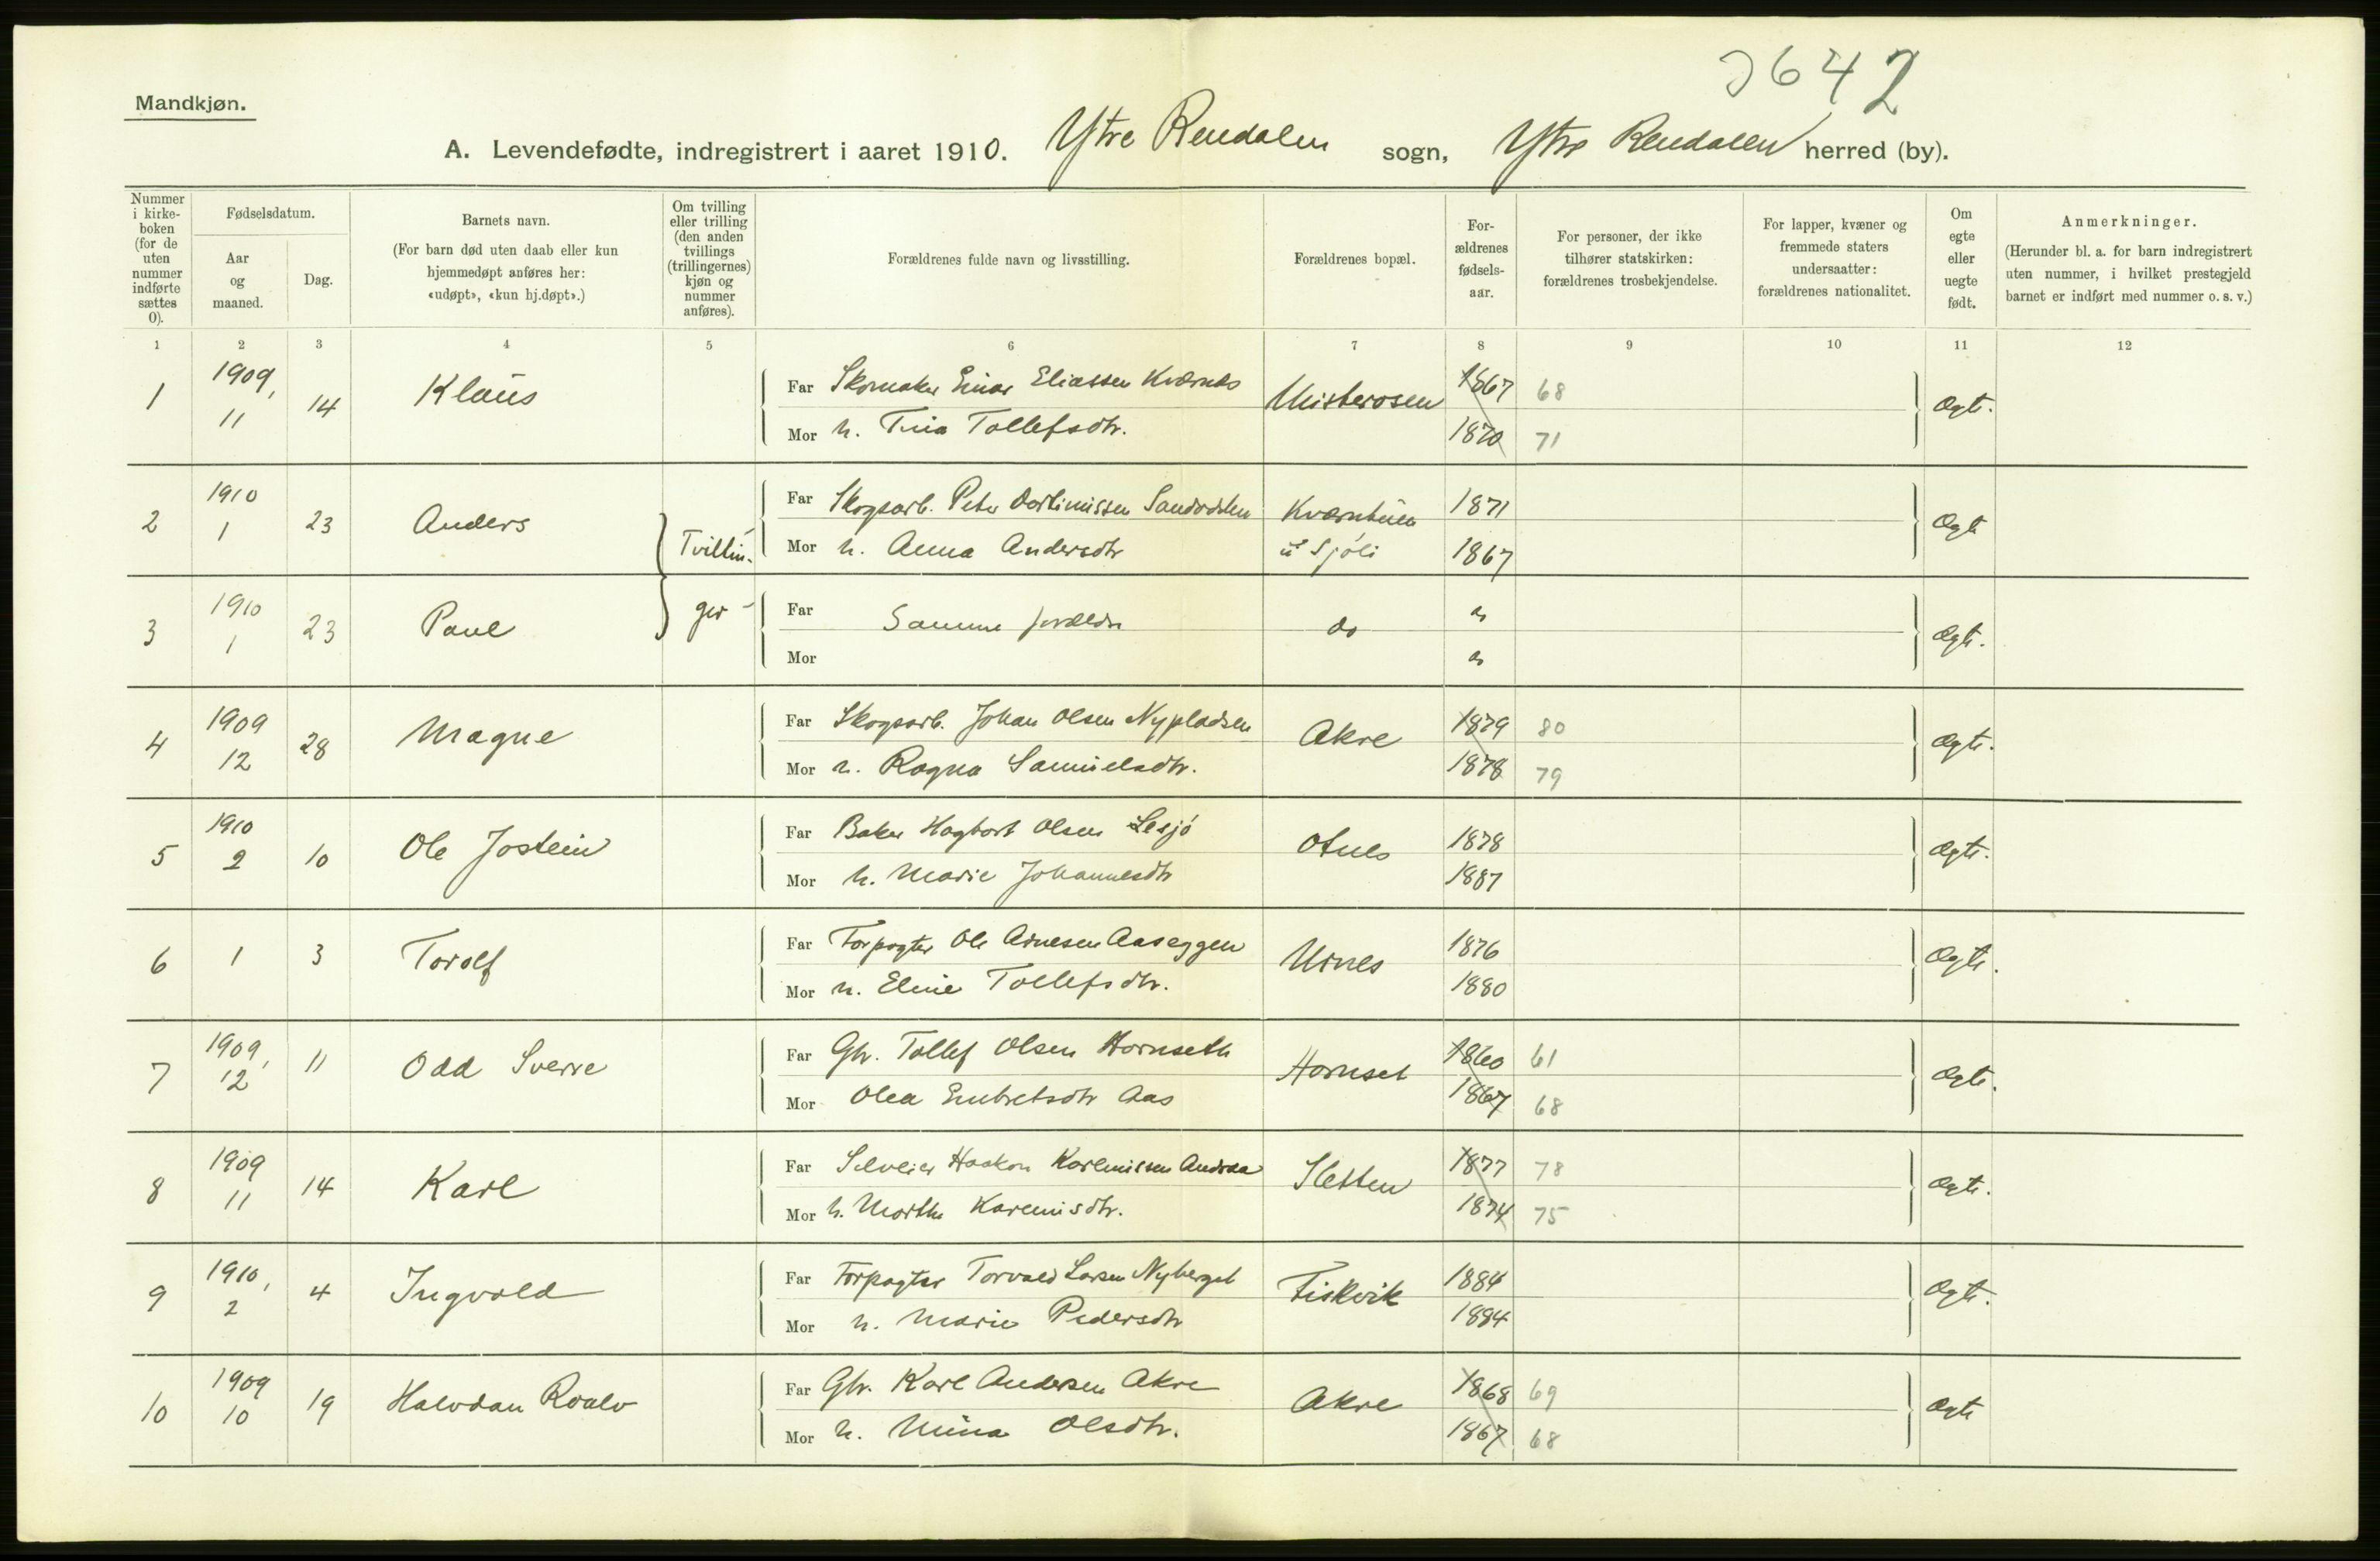 3642
Mandkjøn.
A. Levendefødte, indregistrert i aaret 1910. Ytre Rendalen sogn, Ytre Rendalen herred (by).
Nummer i kirke-boken (for de uten nummer indførte sættes 0).
Fødselsdatum.
Aar og maaned.
Dag.
Barnets navn.
(For barn død uten daab eller kun hjemmedøpt anføres her: «udøpt», «kun hj.døpt».)
Om tvilling eller trilling (den anden tvillings (trillingernes) kjøn og nummer anføres).
Forældrenes fulde navn og livsstilling.
Forældrenes bopæl.
For-ældrenes fødsels-aar.
For personer, der ikke tilhører statskirken: forældrenes trosbekjendelse.
For lapper, kvæner og fremmede staters undersaatter: forældrenes nationalitet.
Om egte eller uegte født.
Anmerkninger.
(Herunder bl. a. for barn indregistrert uten nummer, i hvilket prestegjeld barnet er indført med nummer o. s. v.)
1 2 3 4 5 6 7 8 9 10 11 12
1 1909, 11 14 Klaus
Far Skomaker Einar Eliassen Kværnes Misterosen 1867 68 Ægte.
Mor h. Tina Tollefsdtr. 1870 71
2 1910 1 23 Anders Tvillin-
Far Skogsarb. Peter Sandodden Kværnbuen 1871 Ægte
Mor h. Anna Andersdtr u/ Sjöli 1867
3 1910 1 23 Paul ger
Far Samme foreldre do do Ægte.
Mor do
4 1909 12 28 Magne
Far Skogsarb. Johan Olsen Nypladsen Akre 1879 80 Ægte.
Mor h. Ragna Samuelsdtr. 1878 79
5 1910 2 10 Ole Jostein
Far Baker Hagbart Olsen Lesjö Otnes 1878 Ægte.
Mor h. Marie Johannesdtr 1887
6 1 3 Torolf
Far Forpagter Ole Arnesen Aaseggen Unes 1876 Ægte.
Mor h. Eline Tollefsdtr. 1880
7 1909, 12 11 Odd Sverre
Far Gbr. Tollef Olsen Hornseth Hornset 1860 61 Ægte.
Mor Olea Embretsdtr Aas 1867 68
8 1909 11 14 Karl
Far Selveier Haakon Karlenissen Andraa Sletten 1877 78 Ægte.
Mor h. Marthe Karenisdtr. 1874 75
9 1910, 2 4 Ingvald
Far Forpagter Torvald Larsen Nyberget Fiskvik 1884 Ægte.
Mor h. Marie Pedersdtr 1884
10 1909 10 19 Halvdan Roalv
Far Gbr. Karl Andersen Akre Akre 1868 69 Ægte
Mor h. Mina Olsdtr. 1867 68